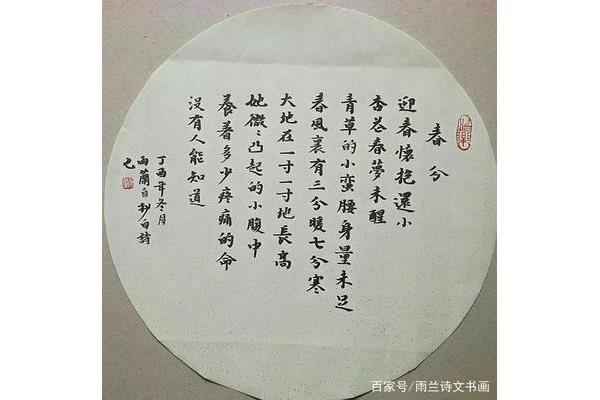 春分
迎春懷抱還小
杏苍春夢未醒
青草的小蛮腰身量未足
春風裏有三分暖七分寒
大地在一寸一寸地長高
她微〻凸起的小腹中
養着多少疼痛的命
没有人能知道
丁酉年冬月
雨蘭自抄自詩
也
百家号/雨兰诗文书画